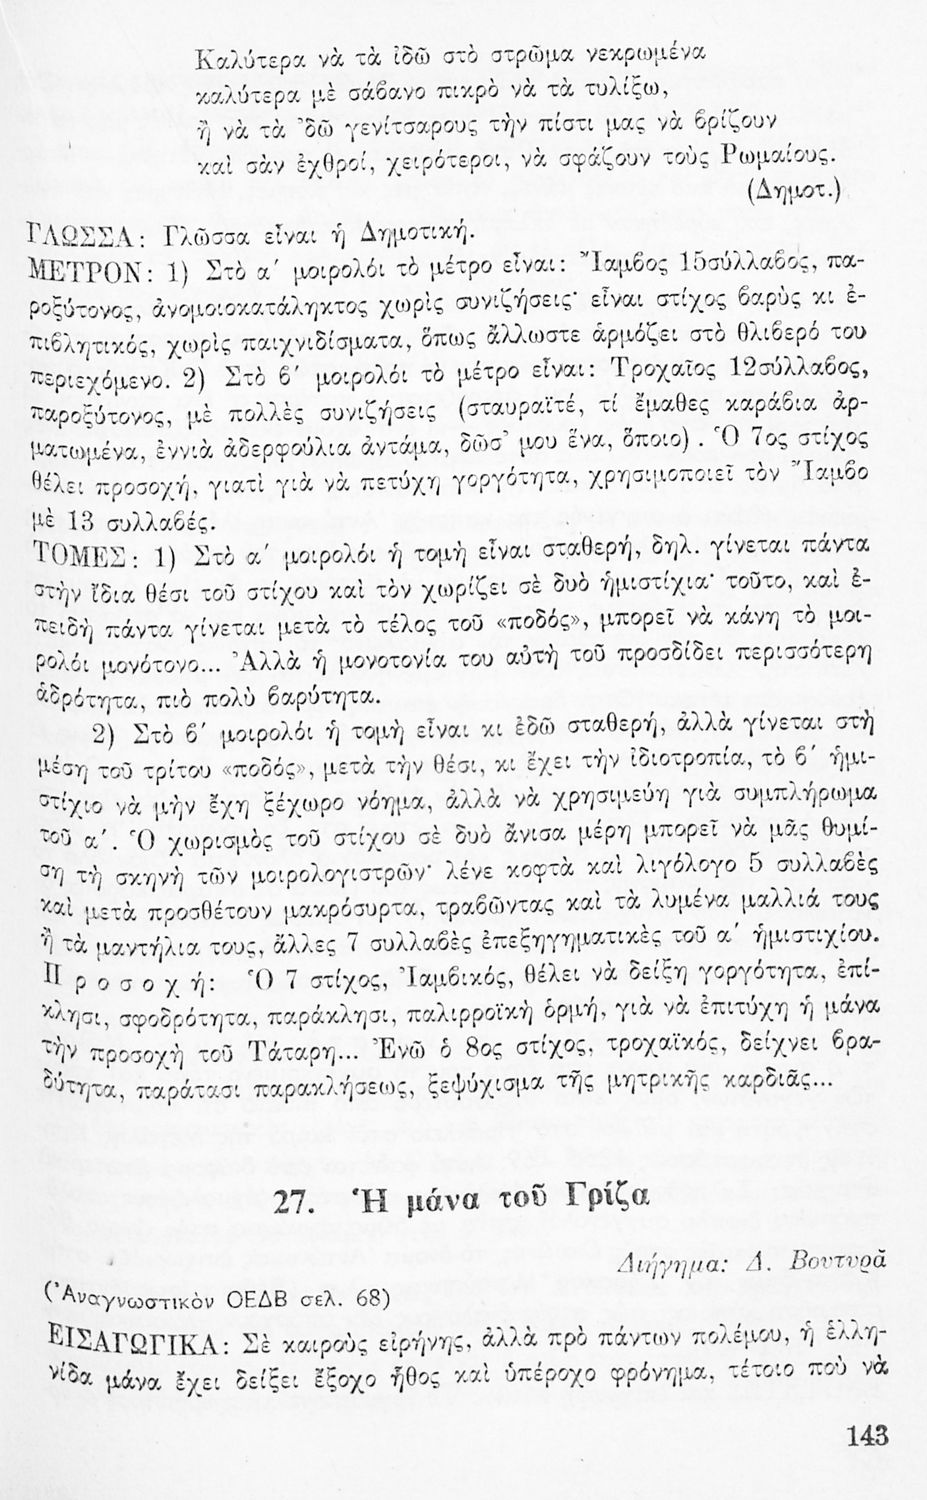 Καλύτερα νὰ τὰ ἰδῶ στὸ στρῶμα νεκρωμένα
καλύτερα μὲ σάβανο πικρὸ νὰ τὰ τυλίξω,
ἢ νὰ τὰ ’δῶ γενίτσαρους τὴν πίστι μας νὰ βρίζουν
καὶ σὰν ἐχθροί, χειρότεροι, νὰ σφάζουν τοὺς Ρωμαίους.
(Δημοτ.)
ΓΛΩΣΣΑ: Γλῶσσα εἶναι ἡ Δημοτική.
ΜΕΤΡΟΝ: 1) Στὸ α′ μοιρολόι τὸ μέτρο εἶναι: Ἴαμβος 15σύλλαβος, πα-
ροξύτονος, ἀνομοιοκατάληκτος χωρὶς συνιζήσεις· εἶναι στίχος βαρὺς κι ἐ-
πιβλητικός, χωρὶς παιχνιδίσματα, ὅπως ἄλλωστε ἁρμόζει στὸ θλιβερό του
περιεχόμενο. 2) Στὸ β′ μοιρολόι τὸ μέτρο εἶναι: Τροχαῖος 12σύλλαβος,
παροξύτονος, μὲ πολλὲς συνιζήσεις (σταυραϊτέ, τί ἔμαθες καράβια ἀρ-
ματωμένα, ἐννιὰ ἀδερφούλια ἀντάμα, δῶσ’ μου ἕνα, ὅποιο). Ὁ 7ος στίχος
θέλει προσοχή, γιατὶ γιὰ νὰ πετύχη γοργότητα, χρησιμοποιεῖ τὸν Ἴαμβο
μὲ 13 συλλαβές.
ΤΟΜΕΣ: 1) Στὸ α′ μοιρολόι ἡ τομὴ εἶναι σταθερή, δηλ. γίνεται πάντα
στὴν ἴδια θέσι τοῦ στίχου καὶ τὸν χωρίζει σὲ δυὸ ἡμιστίχια· τοῦτο, καὶ ἐ-
πειδὴ πάντα γίνεται μετὰ τὸ τέλος τοῦ «ποδός», μπορεῖ νὰ κάνη τὸ μοι-
ρολόι μονότονο... Ἀλλὰ ἡ μονοτονία του αὐτὴ τοῦ προσδίδει περισσότερη
ἁδρότητα, πιὸ πολὺ βαρύτητα.
2) Στὸ β′ μοιρολόι ἡ τομὴ εἶναι κι ἐδῶ σταθερή, ἀλλὰ γίνεται στὴ
μέση τοῦ τρίτου «ποδός», μετὰ τὴν θέσι, κι ἔχει τὴν ἰδιοτροπία, τὸ β′ ἡμι-
στίχιο νὰ μὴν ἔχη ξέχωρο νόημα, ἀλλὰ νὰ χρησιμεύη γιὰ συμπλήρωμα
τοῦ α′. Ὁ χωρισμὸς τοῦ στίχου σὲ δυὸ ἄνισα μέρη μπορεῖ νὰ μᾶς θυμί-
ση τὴ σκηνὴ τῶν μοιρολογιστρῶν· λένε κοφτὰ καὶ λιγόλογο 5 συλλαβὲς
καὶ μετὰ προσθέτουν μακρόσυρτα, τραβῶντας καὶ τὰ λυμένα μαλλιά τους
ἢ τὰ μαντήλια τους, ἄλλες 7 συλλαβὲς ἐπεξηγηματικὲς τοῦ α′ ἡμιστιχίου.
Προσοχή: Ὁ 7 στίχος, Ἰαμβικός, θέλει νὰ δείξη γοργότητα, ἐπί-
κλησι, σφοδρότητα, παράκλησι, παλιρροϊκὴ ὁρμή, γιὰ νὰ ἐπιτύχη ἡ μάνα
τὴν προσοχὴ τοῦ Τάταρη... Ἐνῶ ὁ 8ος στίχος, τροχαϊκός, δείχνει βρα-
δύτητα, παράτασι παρακλήσεως, ξεψύχισμα τῆς μητρικῆς καρδιᾶς...
27. Ἡ μάνα τοῦ Γρίζα
Διήγημα: Δ. Βουτυρᾶ
(Ἀναγνωστικὸν ΟΕΔΒ σελ. 68)
ΕΙΣΑΓΩΓΙΚΑ: Σὲ καιροὺς εἰρήνης, ἀλλὰ πρὸ πάντων πολέμου, ἡ ἑλλη-
νίδα μάνα ἔχει δείξει ἔξοχο ἦθος καὶ ὑπέροχο φρόνημα, τέτοιο ποὺ νὰ
143